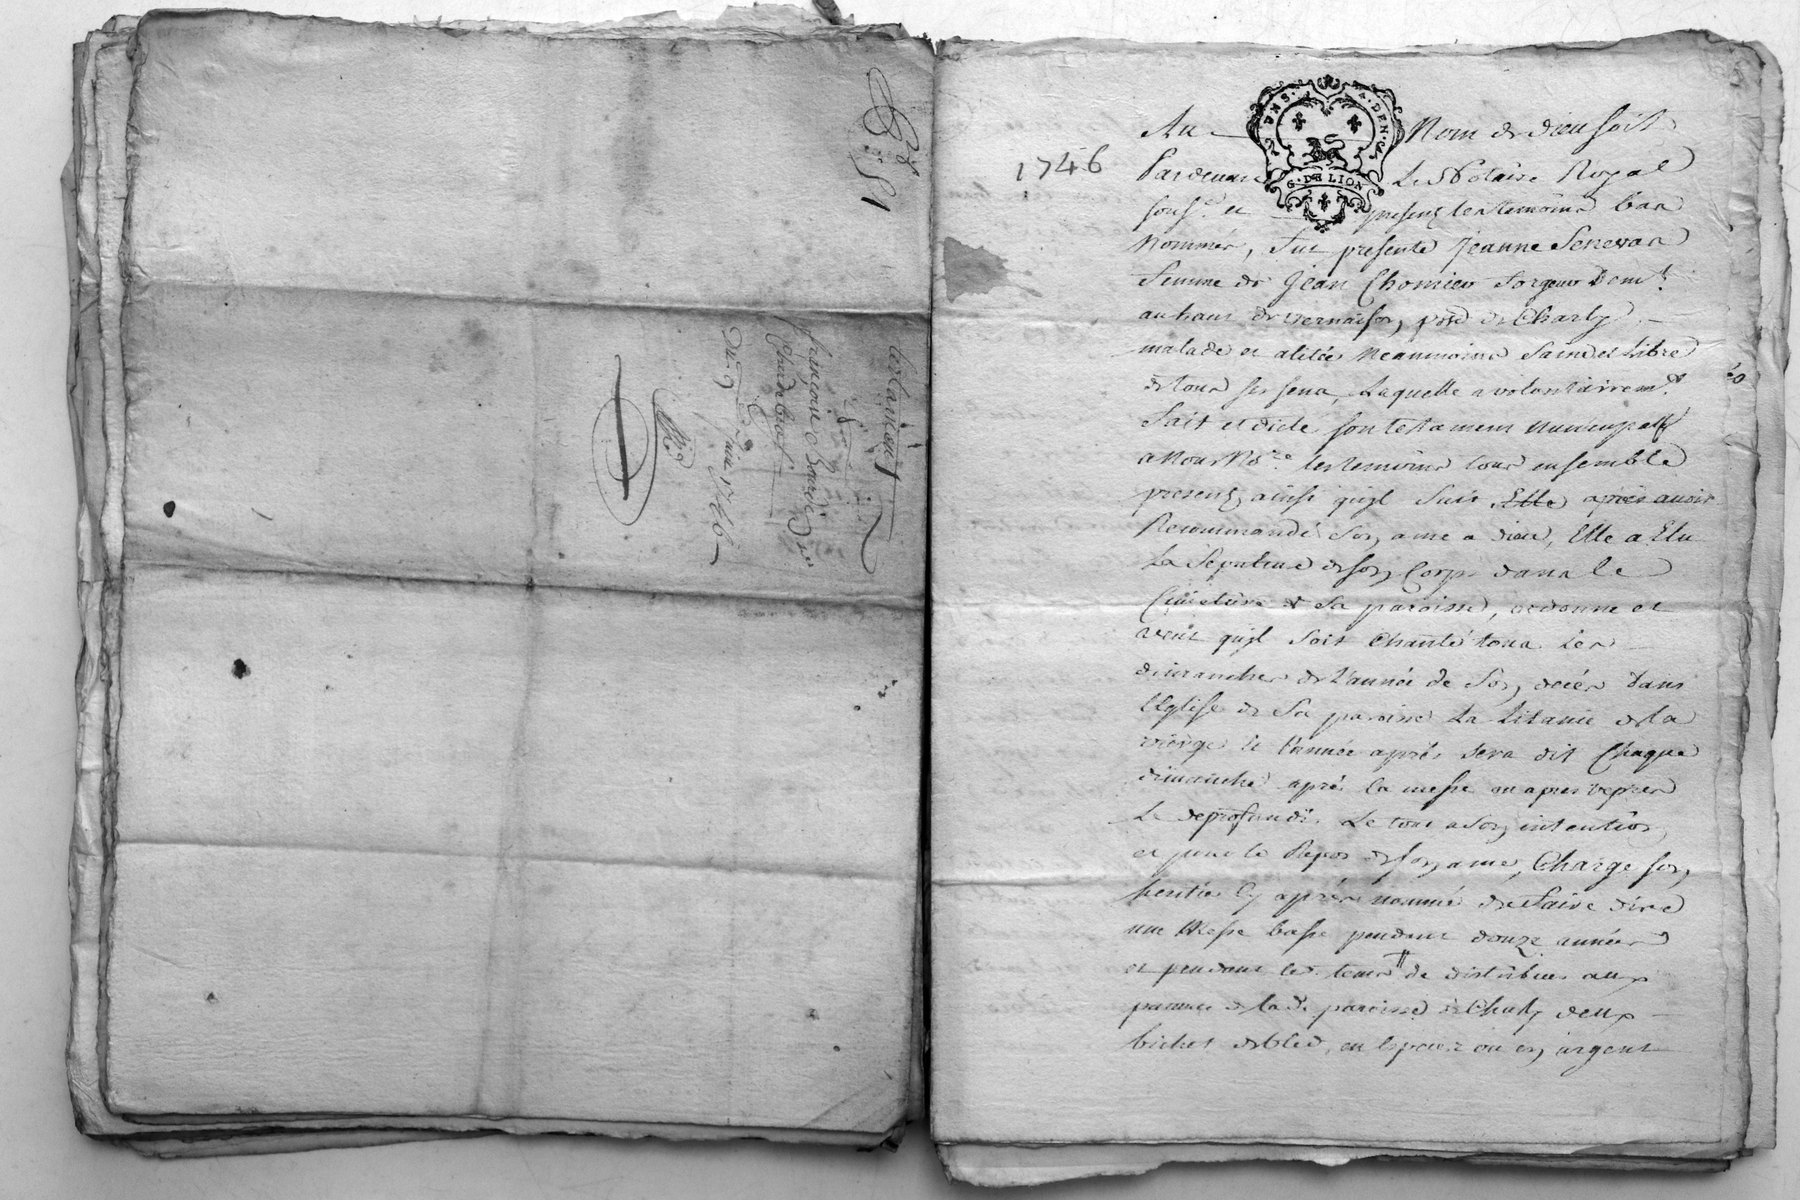 testament
françoise
du 9 Juin 1746
1746
DMS. 4. DEN.
G. DE LION
Au Nom de dieu soit
Pardevant Le Notaire Royal
sous.é et presens les temoins bas
Nommés, fut presente Jeanne Senevas
femme de Jean Chomier forgeur Dem.t
au haut de vernaison, p.sse de Charly
malade et alitée Neanmoins saine et libre
de tous ses sens, Laquelle a volontairem.t
fait et dicté son testament nuncupatif
a Nous No.re les temoins tous ensemble
presens, ainsi quil suit Elle apres avoir
Recommandé son ame a dieu, Elle a Elu
La Sepulture de son Corps dans le
Cimetiere de sa paroisse, ordonne et
veut quil soit chanté tous les
dimanches de l'année de son decés dans
l'Eglise de Sa paroisse La Litanie de la
vierge et l'année aprés sera dit Chaque
dimanche aprés la messe ou apres vepres
Le deprofundis Le tout a son intention
et pour le Repos de son ame, Charge son
heritier cy aprés nommé de faire dire
une Messe basse pendant douze années
et pendant led. tems de distribuer aux
pauvres de lad. paroisse de Charly deux
bichet de bled, en espece ou en argent